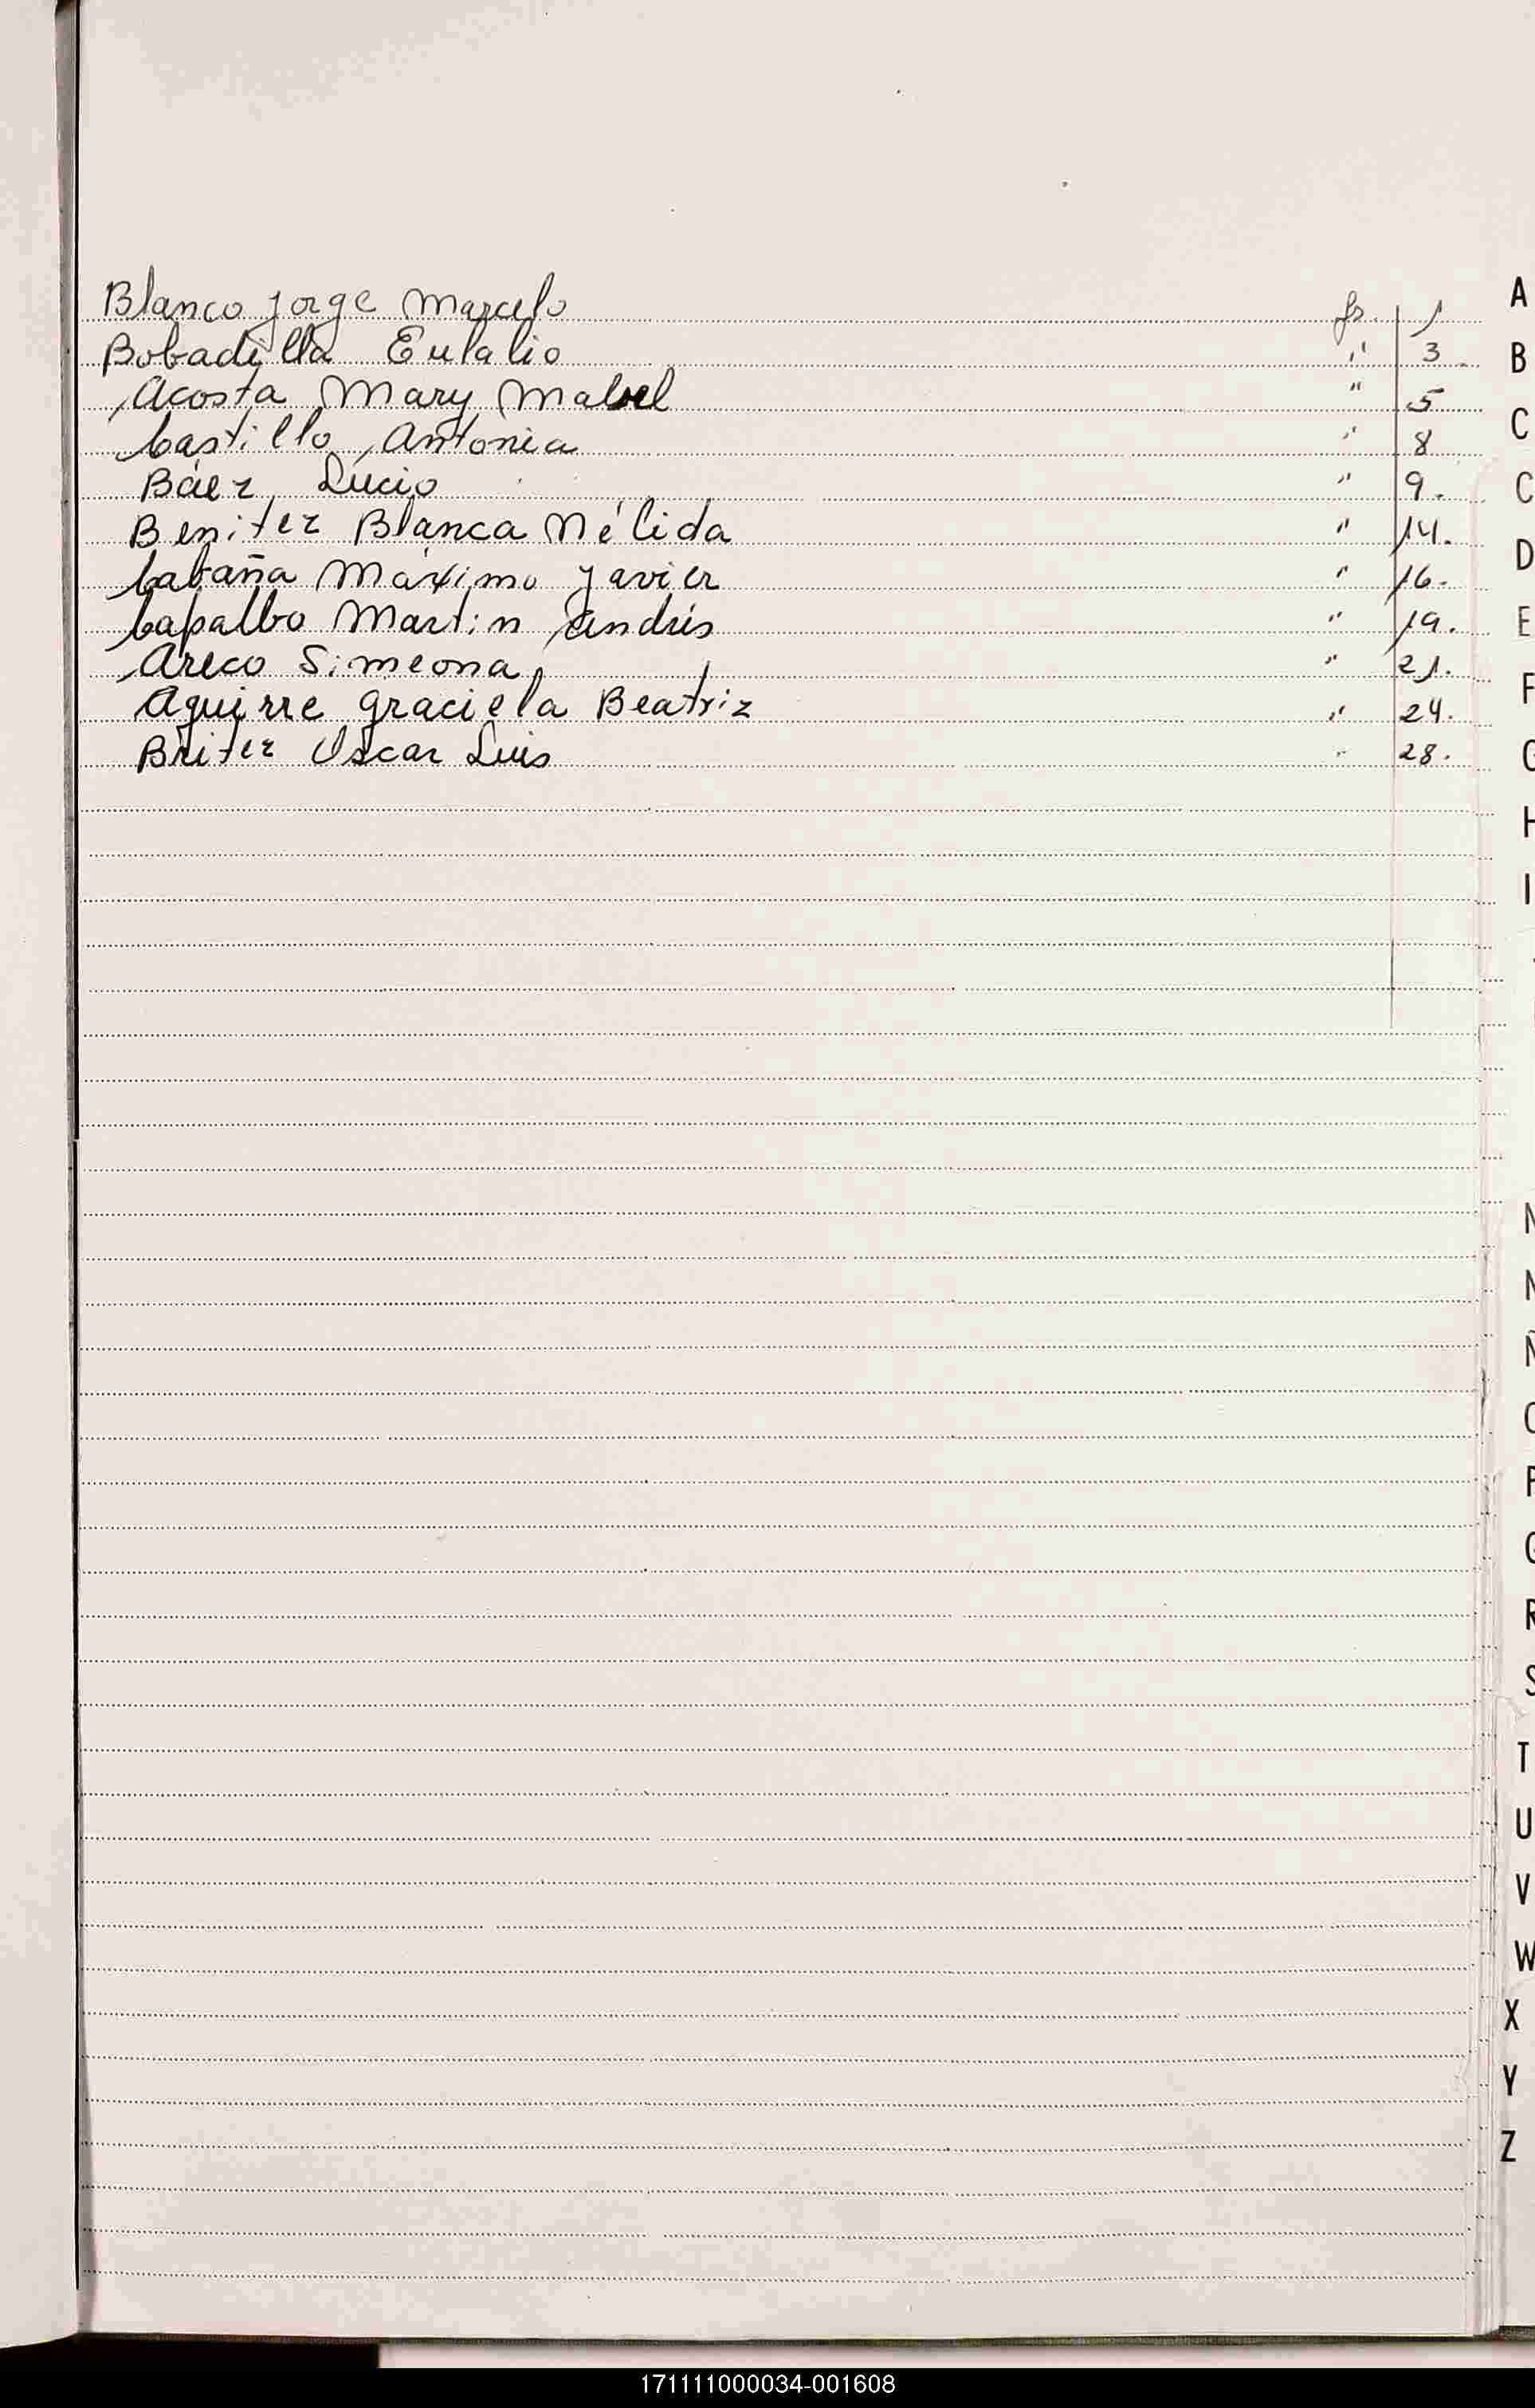 Blanco Jorge Marcelo fs. 1
Bobadilla Eulalio " 3
Acosta Mary Mabel " 5
Castillo Antonia " 8
Báez Lucio " 9.
Benitez Blanca Nélida " 14.
Cabaña Máximo Javier " 16.
Capalbo Martin Andrés " 19.
Areco Simeona " 21.
Aguirre Graciela Beatriz " 24.
Britez Oscar Luis " 28.
A
B
C
C
D
E
F
G
H
I
N
N
Ñ
O
P
Q
R
S
T
U
V
W
X
Y
Z
171111000034-001608